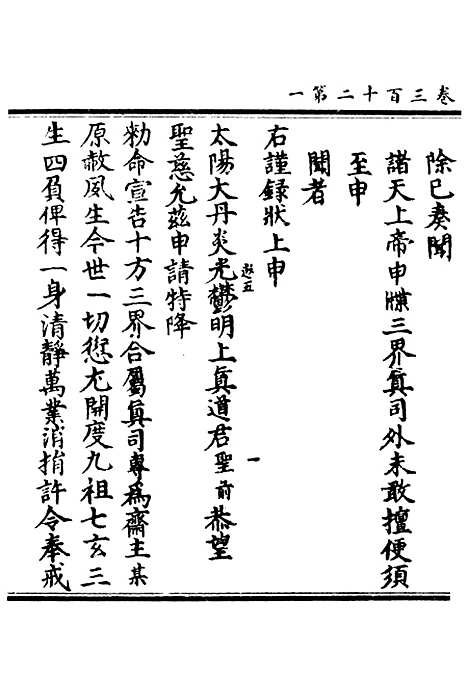 卷三百十二第一
除已奏聞
諸天上帝申牒三界真司外未敢擅便須
至申
聞者
右謹録狀上申
太陽大丹炎光欝明上真道君聖前恭望
聖慈允兹申請特降
勑命宣告十方三界合屬真司專為齋主某
原赦夙生今世一切愆尤開度九祖七玄三
生四負俾得一身清靜萬業消捐許令奉戒
一